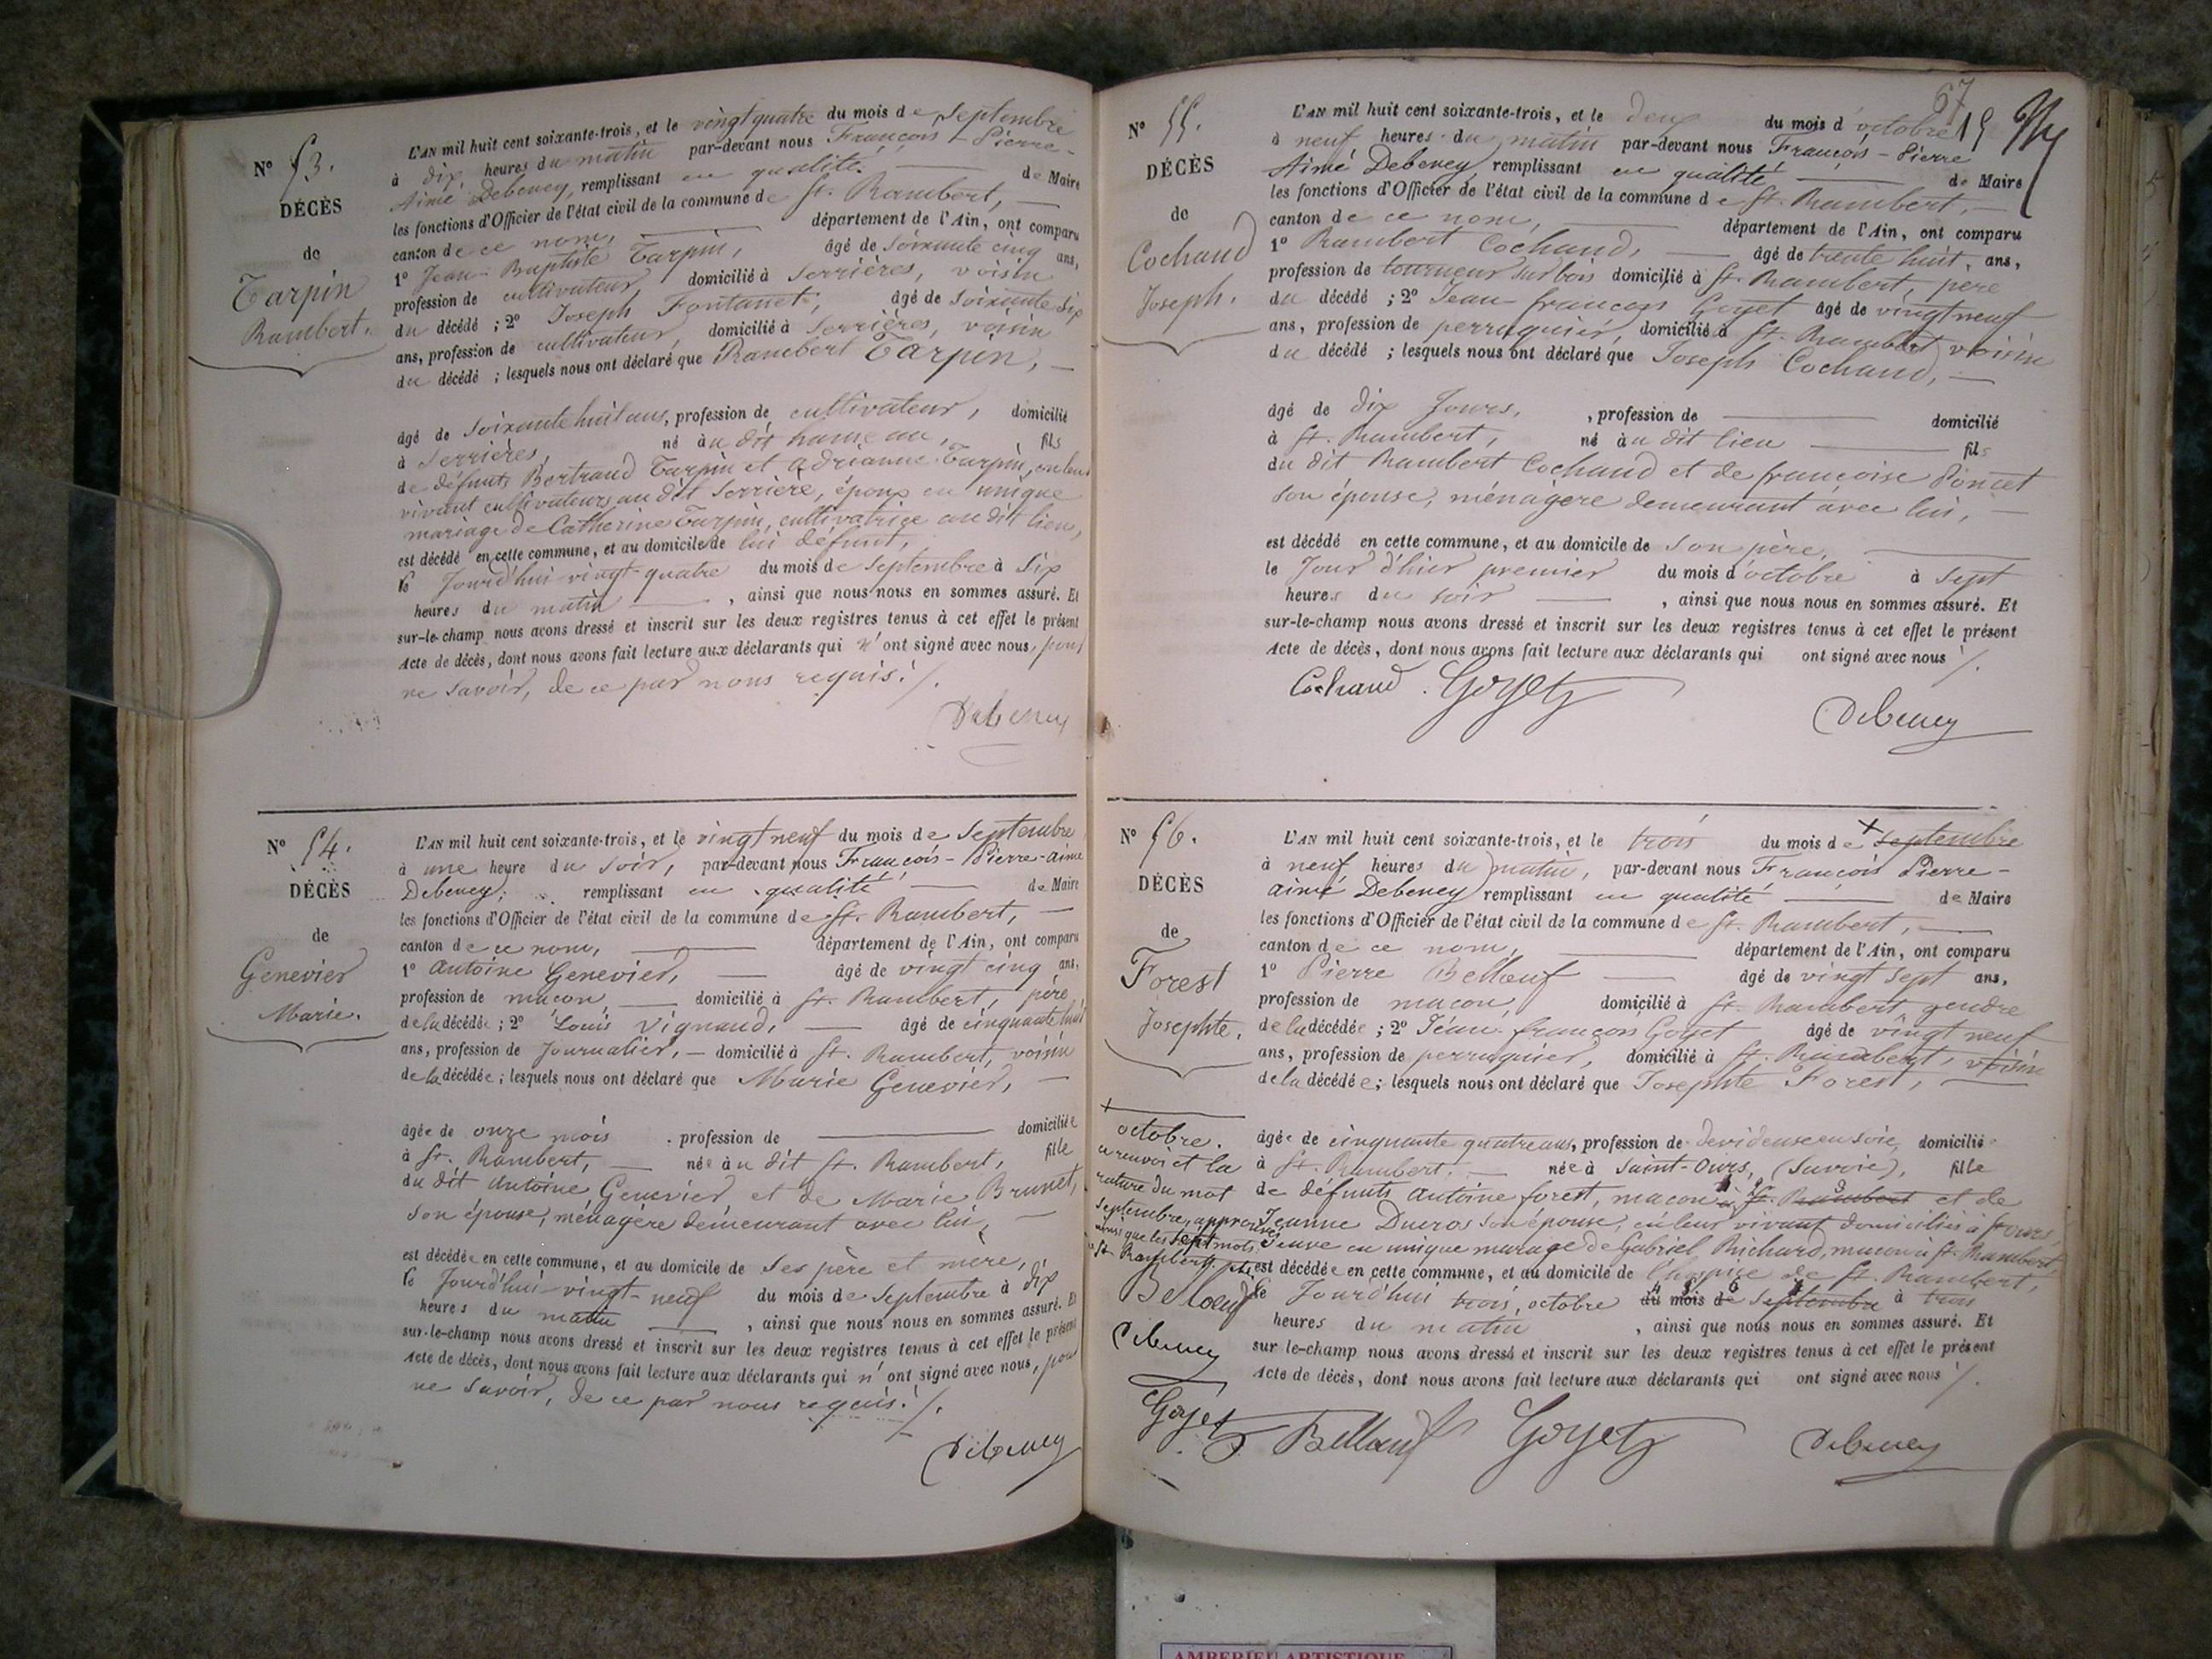 N° 53.
DÉCÈS
de
Tarpin
Rambert.
L'AN mil huit cent soixante-trois, et le vingt quatre du mois de Septembre
à dix heures du matin par-devant nous François-Pierre-
Aimé Debeney, remplissant en qualité de Maire
les fonctions d'Officier de l'état civil de la commune de St. Rambert,
canton de ce nom, département de l'Ain, ont comparu
1° Jean-Baptiste Tarpin, âgé de Soixante cinq ans,
profession de cultivateur, domicilié à Serrières, voisin
du décédé ; 2° Joseph Fontanet, âgé de Soixante Six
ans, profession de cultivateur, domicilié à Serrières, voisin
du décédé ; lesquels nous ont déclaré que Rambert Tarpin,
âgé de Soixante huit ans, profession de cultivateur, domicilié
à Serrières, né au dit hameau, fils
de défunts Bertrand Tarpin et Adrianne Tarpin, en leur
vivant cultivateurs au dit Serrière, époux en unique
mariage de Catherine Tarpin, cultivatrice au dit lieu,
est décédé en cette commune, et au domicile de lui défunt,
le Jourd'hui vingt-quatre du mois de Septembre à Six
heures du matin , ainsi que nous nous en sommes assuré. Et
sur-le-champ nous avons dressé et inscrit sur les deux registres tenus à cet effet le présent
Acte de décès, dont nous avons fait lecture aux déclarants qui n'ont signé avec nous, pour
ne savoir, de ce par nous requis ./.
Debeney
N° 54.
DÉCÈS
de
Genevier
Marie.
L'AN mil huit cent soixante-trois, et le vingt neuf du mois de Septembre
à une heure du Soir, par-devant nous François-Pierre-aimé
Debeney, remplissant en qualité de Maire
les fonctions d'Officier de l'état civil de la commune de St. Rambert,
canton de ce nom, département de l'Ain, ont comparu
1° Antoine Genevier, âgé de vingt cinq ans,
profession de maçon domicilié à St. Rambert, père
de la décédée ; 2° Louis Vignaud, âgé de cinquante huit
ans, profession de Journalier, domicilié à St. Rambert, voisin
de la décédée ; lesquels nous ont déclaré que Marie Genevier,
âgée de onze mois , profession de domiciliée
à St. Rambert, née au dit St. Rambert, fille
du dit Antoine Genevier et de Marie Brunet,
Son épouse, ménagère demeurant avec lui,
est décédée en cette commune, et au domicile de Ses père et mère,
le Jourd'hui vingt-neuf du mois de Septembre à dix
heures du matin , ainsi que nous nous en sommes assuré. Et
sur-le-champ nous avons dressé et inscrit sur les deux registres tenus à cet effet le présent
Acte de décès, dont nous avons fait lecture aux déclarants qui n'ont signé avec nous, pour
ne savoir, de ce par nous requis ./.
Debeney
67
19
N° 55.
DÉCÈS
de
Cochand
Joseph.
L'AN mil huit cent soixante-trois, et le deux du mois d'octobre
à neuf heures du matin par-devant nous François-Pierre
Aimé Debeney, remplissant en qualité de Maire
les fonctions d'Officier de l'état civil de la commune de St. Rambert,
canton de ce nom, département de l'Ain, ont comparu
1° Rambert Cochand, âgé de trente huit, ans,
profession de tourneur sur bois domicilié à St. Rambert, père
du décédé ; 2° Jean-françois Goyet âgé de vingt neuf
ans, profession de perruquier, domicilié à St. Rambert voisin
du décédé ; lesquels nous ont déclaré que Joseph Cochand,
âgé de dix Jours, , profession de domicilié
à St. Rambert, né au dit lieu fils
du dit Rambert Cochand et de françoise Poncet
son épouse, ménagère demeurant avec lui,
est décédé en cette commune, et au domicile de Son père,
le Jour d'hier premier du mois d'octobre à Sept
heures du soir , ainsi que nous nous en sommes assuré. Et
sur-le-champ nous avons dressé et inscrit sur les deux registres tenus à cet effet le présent
Acte de décès, dont nous avons fait lecture aux déclarants qui ont signé avec nous ./.
Cochand Goyet
Debeney
N° 56.
DÉCÈS
de
Forest
Josephte.
L'AN mil huit cent soixante-trois, et le trois du mois de + Septembre
à neuf heures du matin, par-devant nous François Pierre-
aimé Debeney remplissant en qualité de Maire
les fonctions d'Officier de l'état civil de la commune de St. Rambert,
canton de ce nom, département de l'Ain, ont comparu
1° Pierre Bellœuf âgé de vingt Sept ans,
profession de maçon, domicilié à St. Rambert gendre
de la décédée ; 2° Jean-françois Goyet âgé de vingt neuf
ans, profession de perruquier, domicilié à St. Rambert, voisin
de la décédée ; lesquels nous ont déclaré que Josephte Forest,
âgée de cinquante quatre ans, profession de devideuse en soie, domiciliée
à St. Rambert, née à Saint-Ours, (Savoie), fille
de défunts Antoine forest, maçon à St. Rambert et de
Jeanne Ducros son épouse, en leur vivant domiciliés à St Ours,
veuve en unique mariage de Gabriel Richard, maçon à St. Rambert
est décédée en cette commune, et au domicile de l'hospice de St. Rambert,
le Jourd'hui trois, octobre du mois de Septembre à trois
heures du matin , ainsi que nous nous en sommes assuré. Et
sur le-champ nous avons dressé et inscrit sur les deux registres tenus à cet effet le présent
Acte de décès, dont nous avons fait lecture aux déclarants qui ont signé avec nous ./.
+
octobre.
ce renvoi et la
rature du mot
Septembre, approuvés
ainsi que les Sept mots
St. Rambert
Bellœuf
Debeney
Goyet
Bellœuf Goyet Debeney
AMBERIEU ARTISTIQUE